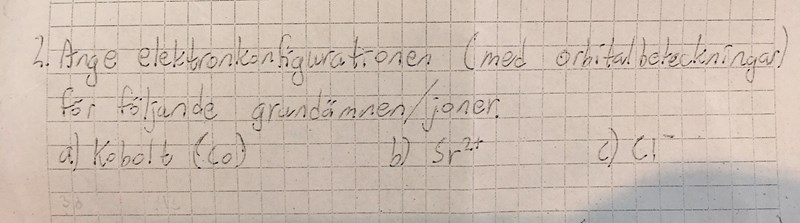 2. Ange elektronkonfigurationen (med orbitalbeteckningar)
för följande grundämnen/joner.
a) Kobolt (Co) b) Sr²⁺ c) Cl⁻